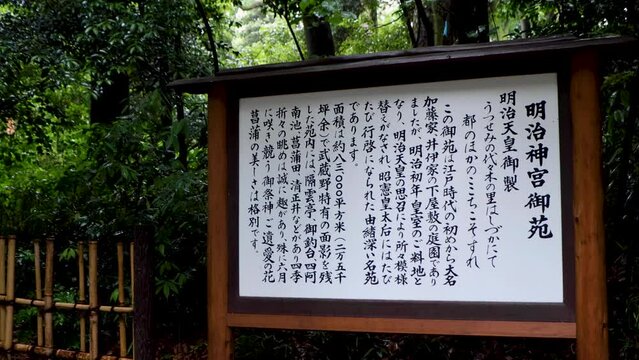 明治神宮御苑
明治天皇御製
うつせみの代々木の里はしづかにて
都のほかのここちこそすれ
この御苑は江戸時代の初めから大名
加藤家、井伊家の下屋敷の庭園であり
ましたが、明治初年皇室のご料地と
なり、明治天皇の思召により所々模様
替えがなされ、昭憲皇太后にはたび
たび行啓になられた由緒深い名苑
であります。
面積は約八三〇〇〇平方米（二万五千
坪余）で武蔵野特有の面影を残
した苑内には隔雲亭、御釣台、四阿、
南池、菖蒲田、清正井などがあり四季
折々の眺めは誠に趣があり殊に六月
に咲き競う御祭神ご遺愛の花
菖蒲の美しさは格別です。